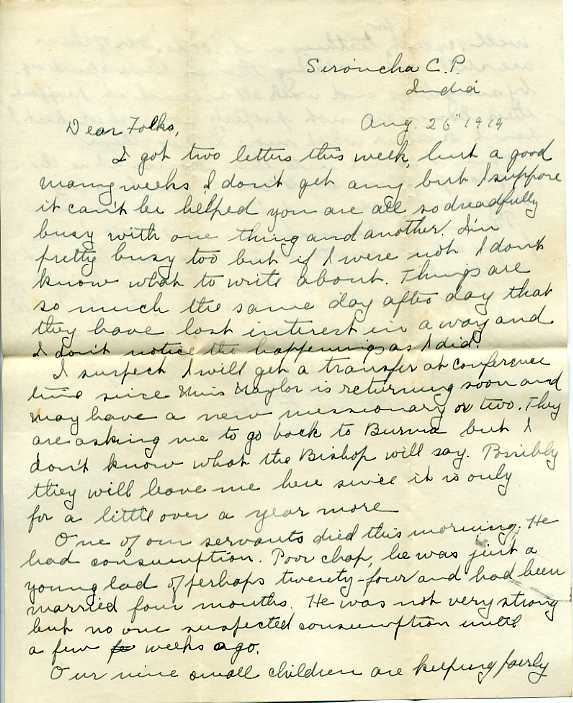 Sironcha C.P.
India
Aug. 26" 1919
Dear Folks,
I got two letters this week, but a good
many weeks I don't get any but I suppose
it can't be helped you are all so dreadfully
busy with one thing and another. I'm
pretty busy too but if I were not I don't
know what to write about. Things are
so much the same day after day that
they have lost interest in a way and
I don't notice the happenings as I did.
I suspect I will get a transfer at conference
time since Miss Naylor is returning soon and
may have a new missionary or two. They
are asking me to go back to Burma but I
don't know what the Bishop will say. Possibly
they will leave me here since it is only
for a little over a year more
One of our servants died this morning. He
had consumption. Poor chap, he was just a
young lad of perhaps twenty-four and had been
married four months. He was not very strong
but no one suspected consumption until
a few weeks ago.
Our nine small children are keeping fairly